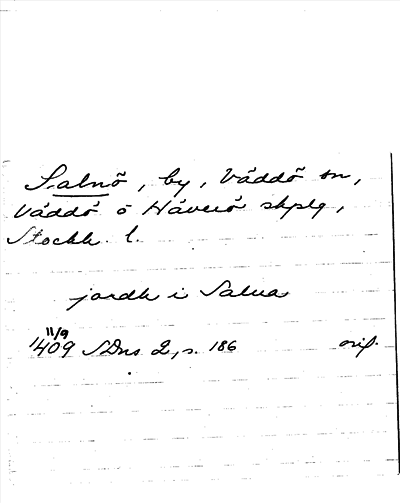 Salnö, by, Väddö sn,
Väddö o Häverö skplg,
Stockh. l.
jordh i Salna
11/9
1409 SDns 2, s. 186 orig.